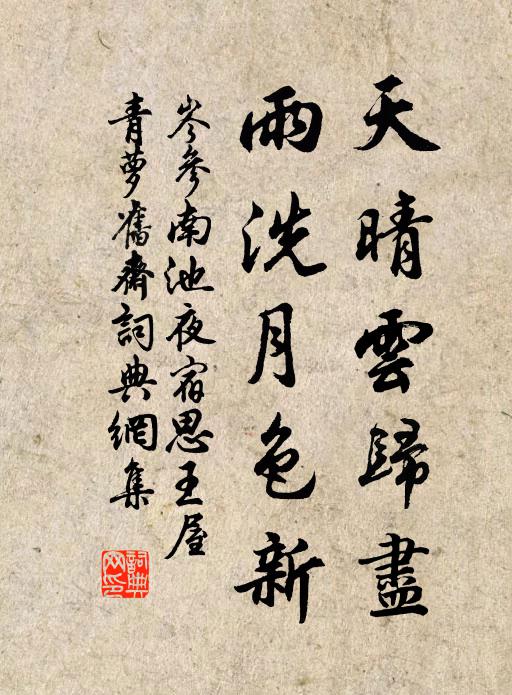 天晴雲歸盡
雨洗月色新
岑參南池夜宿思王屋
青夢舊齋詞典網集
詞典
网印